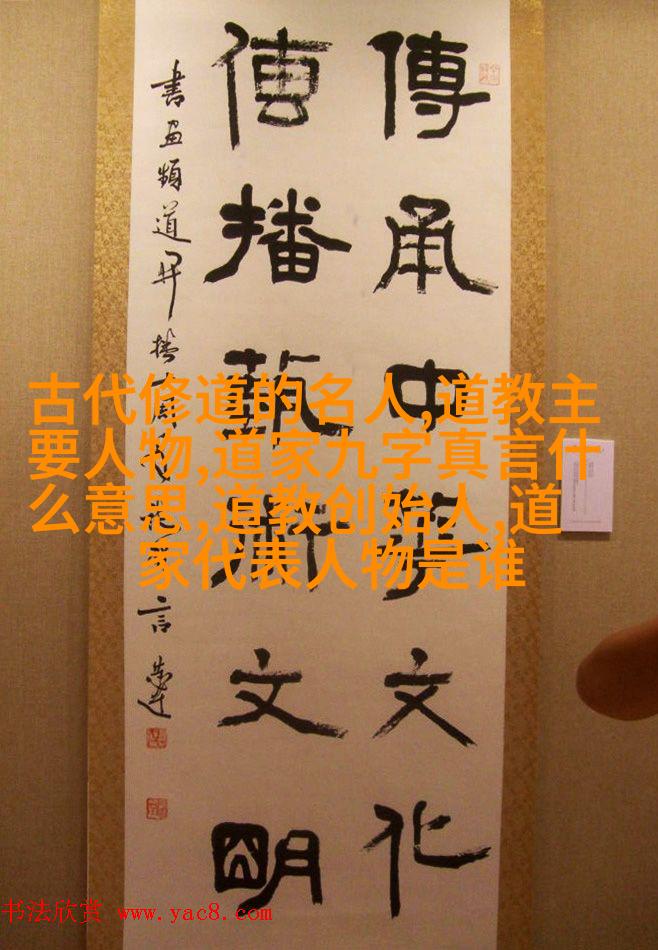 傳承中華文化
傳播藝術文明
書畫頻道開播
言恭達
古代修道的名人,道教主
要人物,道家九字真言什
么意思,道教创始人,道
家代表人物是谁
书法欣赏 www.yac8.com